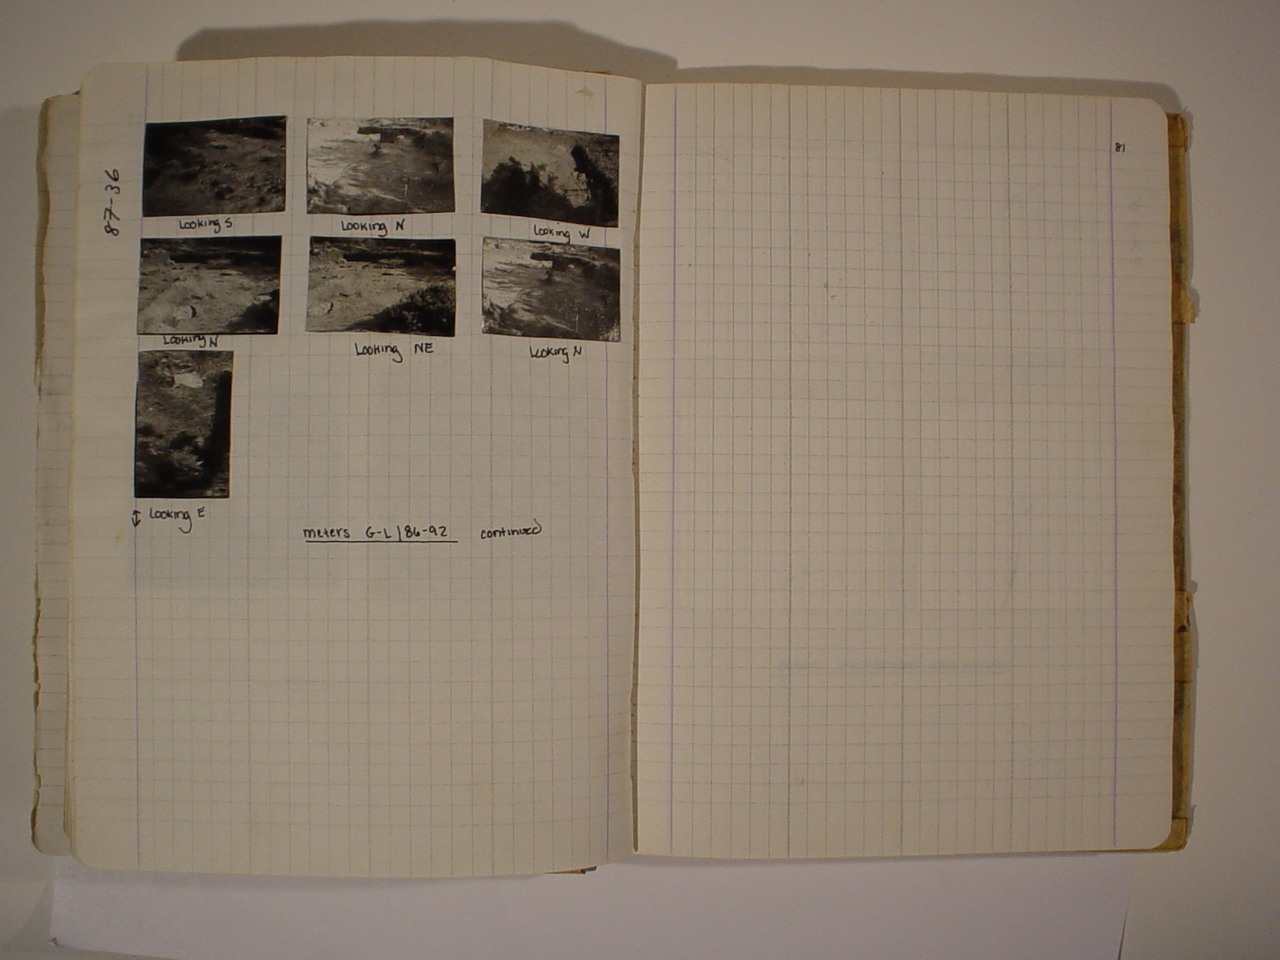 87-36
Looking S
Looking N
Looking W
Looking N
Looking NE
Looking N
Looking E
meters G-L/86-92 continued
81